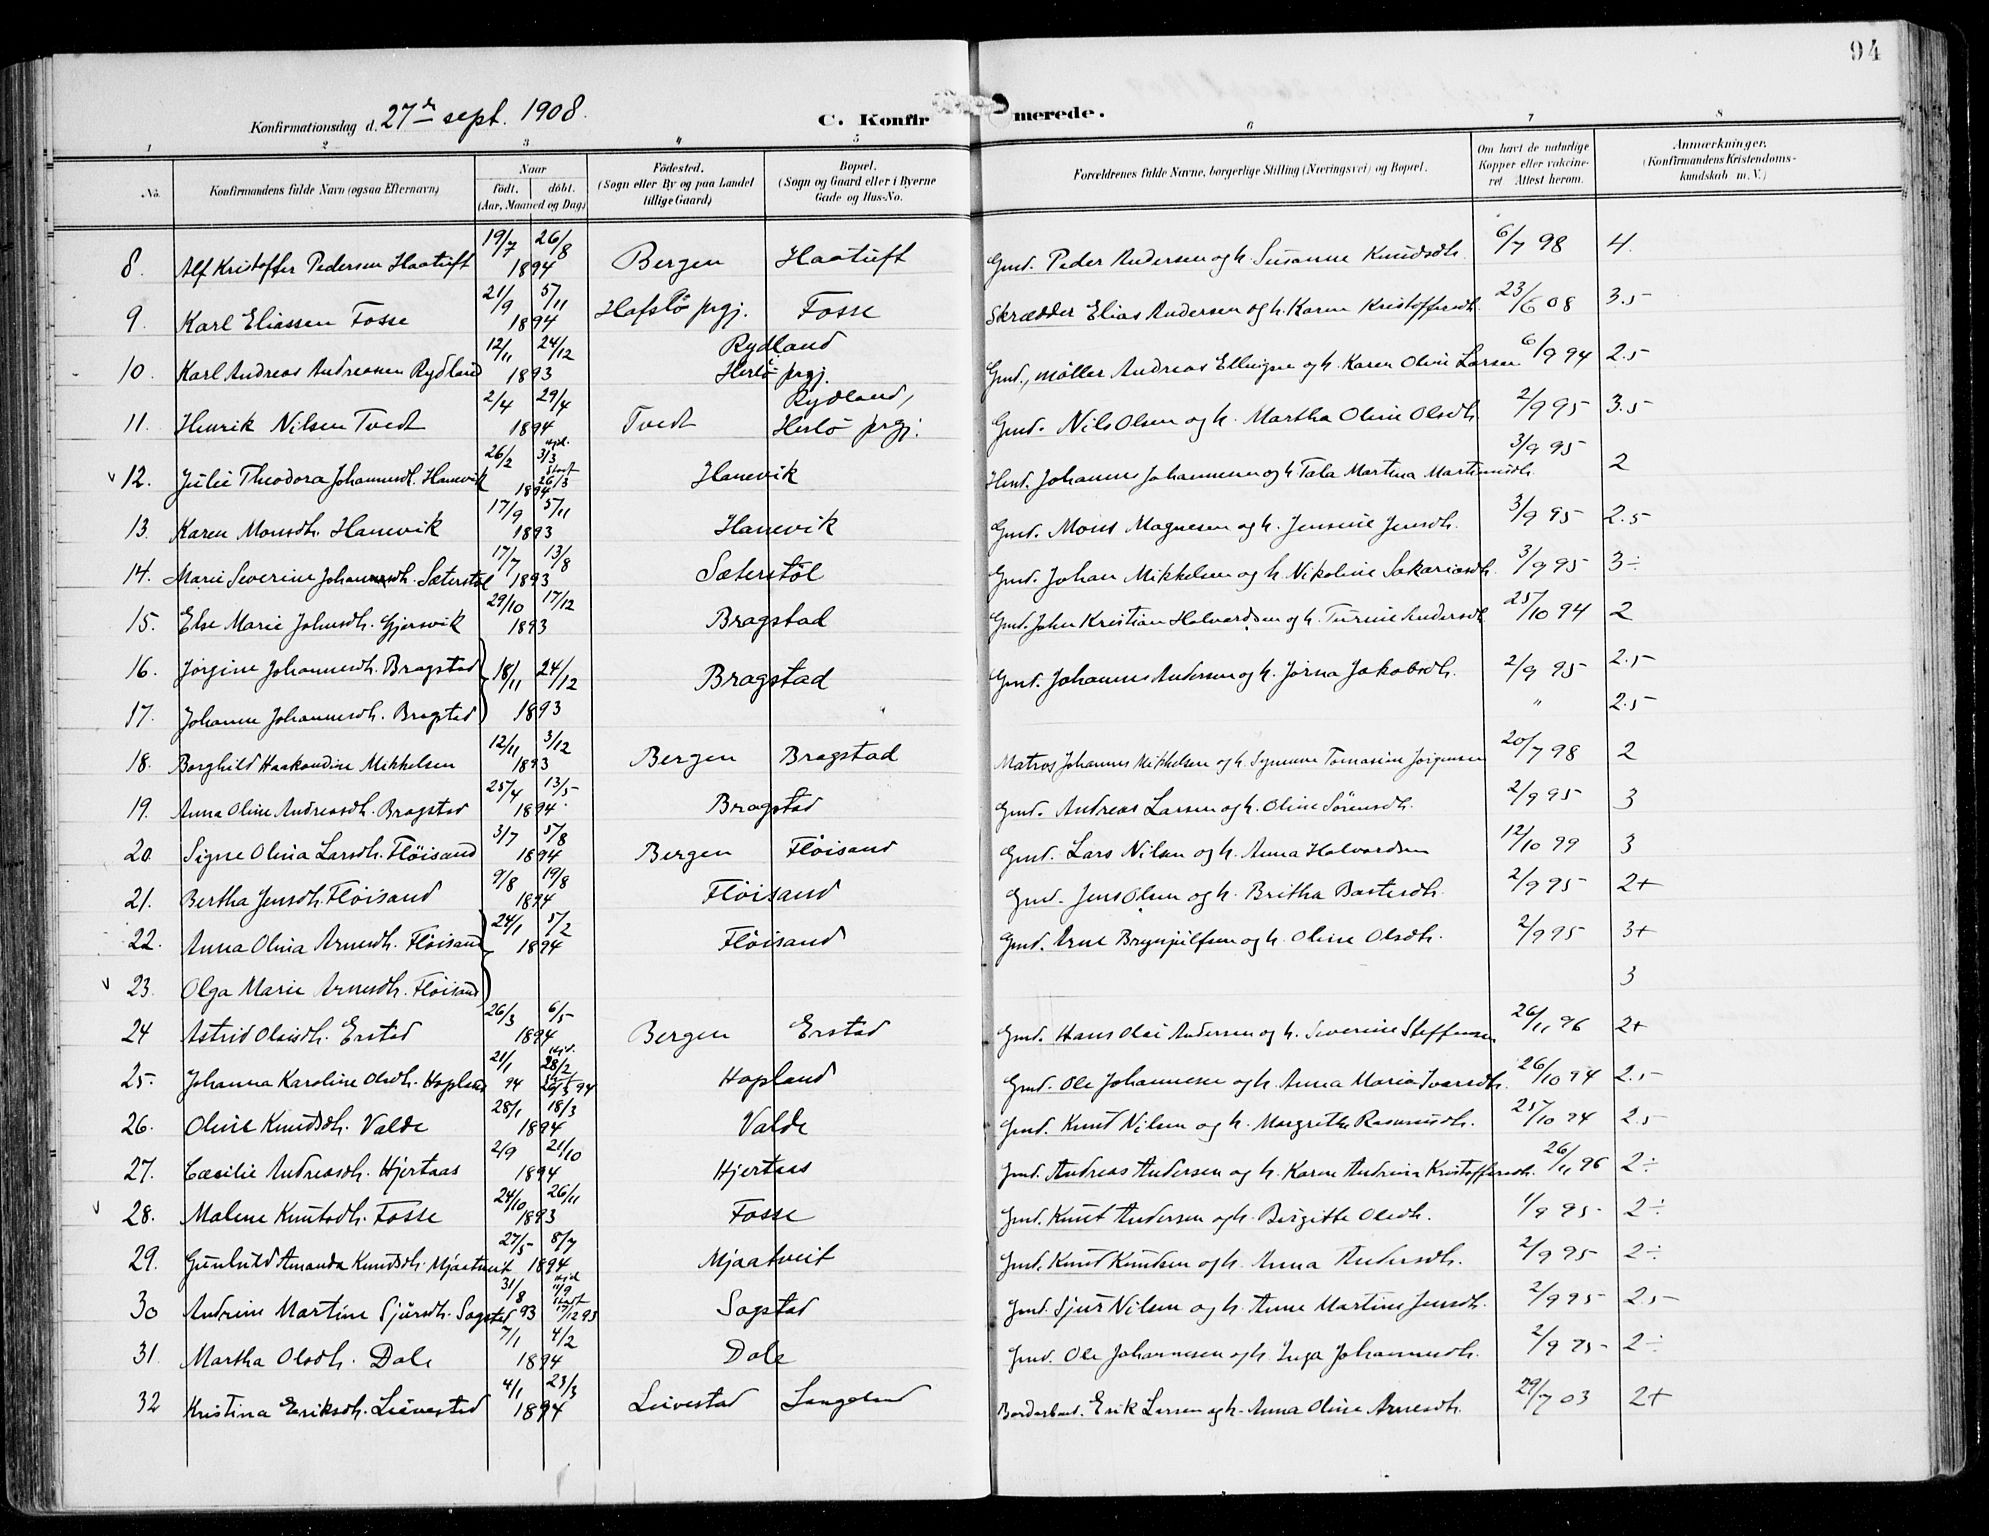 94
Konfirmationsdag d. 27de sept. 1908.
C. Konfirmerede.
1 2 3 4 5 6 7 8
No. Konfirmandens fulde Navn (ogsaa Efternavn) Naar født. døbt. (Aar, Maaned og Dag) Fødested. (Sogn eller By og paa Landet tillige Gaard) Bopæl. (Sogn og Gaard eller i Byerne Gade og Hus-No. Forældrenes fulde Navne, borgerlige Stilling (Næringsvei) og Bopæl. Om havt de naturlige Kopper eller vakcineret Attest herom. Anmærkninger. (Konfirmandens Kristendomskundskab m. V.)
8. Alf Kristoffer Pedersen Haatuft 19/7 26/8 1894 Bergen Haatuft Gmd. Peder Andersen og h. Susanne Knudsdh. 6/7 98 4.
9. Karl Eliassen Fosse 21/9 5/11 1894 Hafslö prgj. Fosse Skrædder Elias Andersen og h. Karen Kristoffersdh. 23/6 08 3.5
10. Karl Andreas Andreasen Rydland 12/11 24/12 1893 Rydland Herlö prgj. Gmd., møller Andreas Ellingsen og h. Karen Oline Larsen 6/9 94 2.5
11. Henrik Nilsen Tvedt 2/4 29/4 1894 Tvedt Rydland, Herlö prgj. Gmd. Nils Olsen og h. Martha Oline Olsdh. 2/9 95 3.5
12. Julie Theodora Johannesdh. Hanevik 26/2 hjd. 3/3 Stadf. 26/3 1894 Hanevik Johannes Johannesen og h. Tala Martina Martinusdh. 3/9 95 2
13. Karen Monsdh. Hanevik 17/9 5/11 1893 Hanevik Gmd. Mons Magnesen og h. Jensine Jensdh. 3/9 95 2.5
14. Marie Severine Johannesdh. Sæterstöl 17/7 13/8 1893 Sæterstöl Gmd. Johan Mikkelsen og h. Nikoline Sakariasdh. 3/9 95 3÷
15. Else Marie Johnsdh. Gjersvik 29/10 17/12 1893 Bragstad Gmd. John Kristian Halvardsen og h. Turine Andersdh. 25/10 94 2
16. Jörgine Johannesdh. Bragstad 18/11 24/12 Bragstad Gmd. Johannes Andersen og h. Jorna Jakobsdh. 2/9 95 2.5
17. Johanne Johannesdh. Bragstad 1893 " 2.5
18. Borghild Haakondine Mikkelsen 12/11 3/12 1893 Bergen Bragstad Matros Johannes Mikkelsen og h. Tomasine Jörgensen 20/7 98 2
19. Anna Oline Andreasdh. Bragstad 25/4 13/5 1894 Bragstad Gmd. Andreas Larsen og h. Oline Sörensdh. 2/9 95 3
20. Signe Olina Larsdh. Flöisand 3/7 5/8 1894 Bergen Flöisand Gmd. Lars Nilsen og h. Anna Halvardsen 12/10 99 3
21. Bertha Jensdh. Flöisand 9/8 19/8 1894 Flöisand Gmd. Jens Olsen og h. Britha Bastesdh. 2/9 95 2+
22. Anna Olina Arnesdh. Flöisand 24/1 5/2 1894 Flöisand Gmd. Arne Brynjulfsen og h. Oline Olsdh. 2/9 95 3+
23. Olga Marie Arnesdh. Flöisand 3
24 Astrid Olinsdh. Erstad 26/3 6/5 1894 Bergen Erstad Gmd. Hans Olai Andersen og h. Severine Steffensen 26/11 96 2+
25. Johanna Karoline Olsdh. Hopland 21/1 94 hjd. 28/2 26/3 94 Hopland Gmd. Ole Johannesen og h. Anna Maria Ivarsdh. 26/10 94 2.5
26. Oline Knudsdh. Valde 28/1 18/3 1894 Valde Gmd. Knut Nilsen og h. Margrethe Rasmusdh. 25/10 94 2.5
27. Cæcilie Andreasdh. Hjertaas 2/9 21/10 1894 Hjertaas Gmd. Andreas Andersen og h. Karen Andrina Kristoffersdh. 26/11 96 2÷
28. Malene Knutsdh. Fosse 24/10 26/11 1893 Fosse Gmd. Knut Andersen og h. Birgitte Olsdh. 1/9 95 2÷
29. Gunhild Amanda Knudsdh. Mjaatveit 27/5 8/7 1894 Mjaatveit Gmd. Knud Knudsen og h. Anna Andersdh. 2/9 95 2÷
30 Andrine Martine Sjursdh. Sagstad 31/8 93 hjd. 11/9 Stadf. 17/12 93 Sagstad Gmd. Sjur Nilsen og h. Anne Martine Jensdh. 2/9 95 2.5
31. Martha Olsdh. Dale 7/1 4/2 1894 Dale Gmd. Ole Johannesen og h. Inga Johannesdh. 2/9 95 2÷
32 Kristina Eriksdh. Leivestad 4/1 23/3 1894 Leivestad Langeland Erik Larsen og h. Anna Oline Arnesdh. 29/7 03 2+